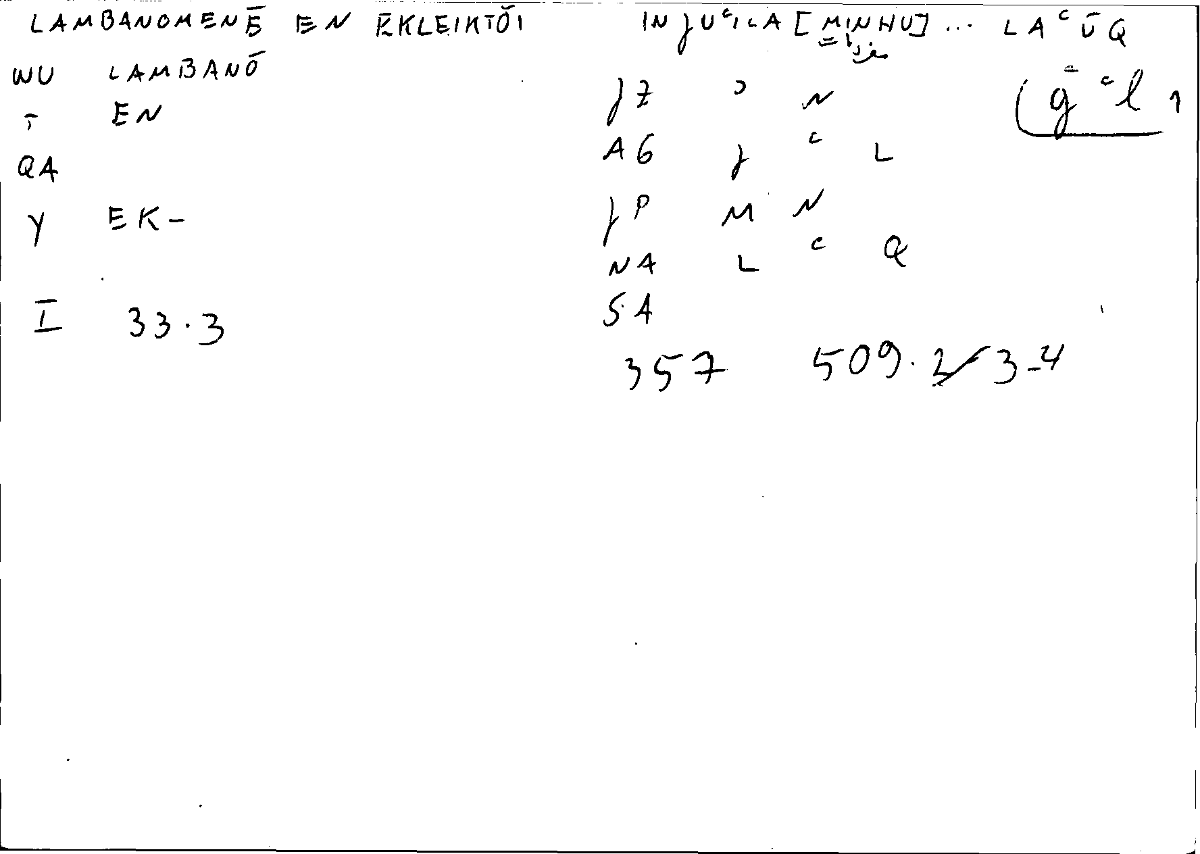 LAMBANOMENĒ EN EKLEIKTŌI INJUʿILA [MINHU] ... LAʿŪQ
WU LAMBANŌ
T EN JZ ʾ N ǧʿl 1
QA AG J ʿ L
Y EK- JP M N
NA L ʿ Q
I 33.3 SA
357 509.2/3-4